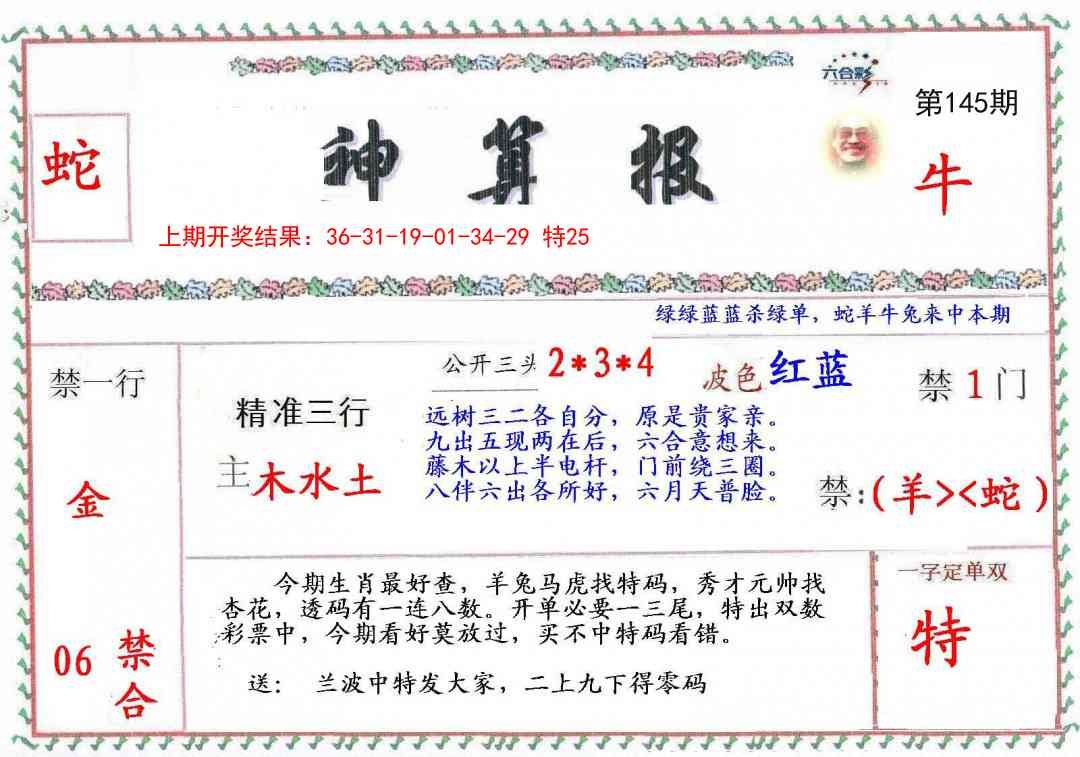 六合彩
第145期
蛇
神算报
牛
上期开奖结果：36-31-19-01-34-29 特25
绿绿蓝蓝杀绿单，蛇羊牛兔来中本期
禁一行
公开三头 2*3*4
波色 红蓝
禁 1 门
精准三行
远树三二各自分，原是贵家亲。
九出五现两在后，六合意想来。
主 木水土
藤木以上半电杆，门前绕三圈。
八伴六出各所好，六月天普脸。
金
禁：(羊><蛇)
今期生肖最好查，羊兔马虎找特码，秀才元帅找
杏花，透码有一连八数。开单必要一三尾，特出双数
彩票中，今期看好莫放过，买不中特码看错。
一字定单双
特
06 禁合
送： 兰波中特发大家，二上九下得零码